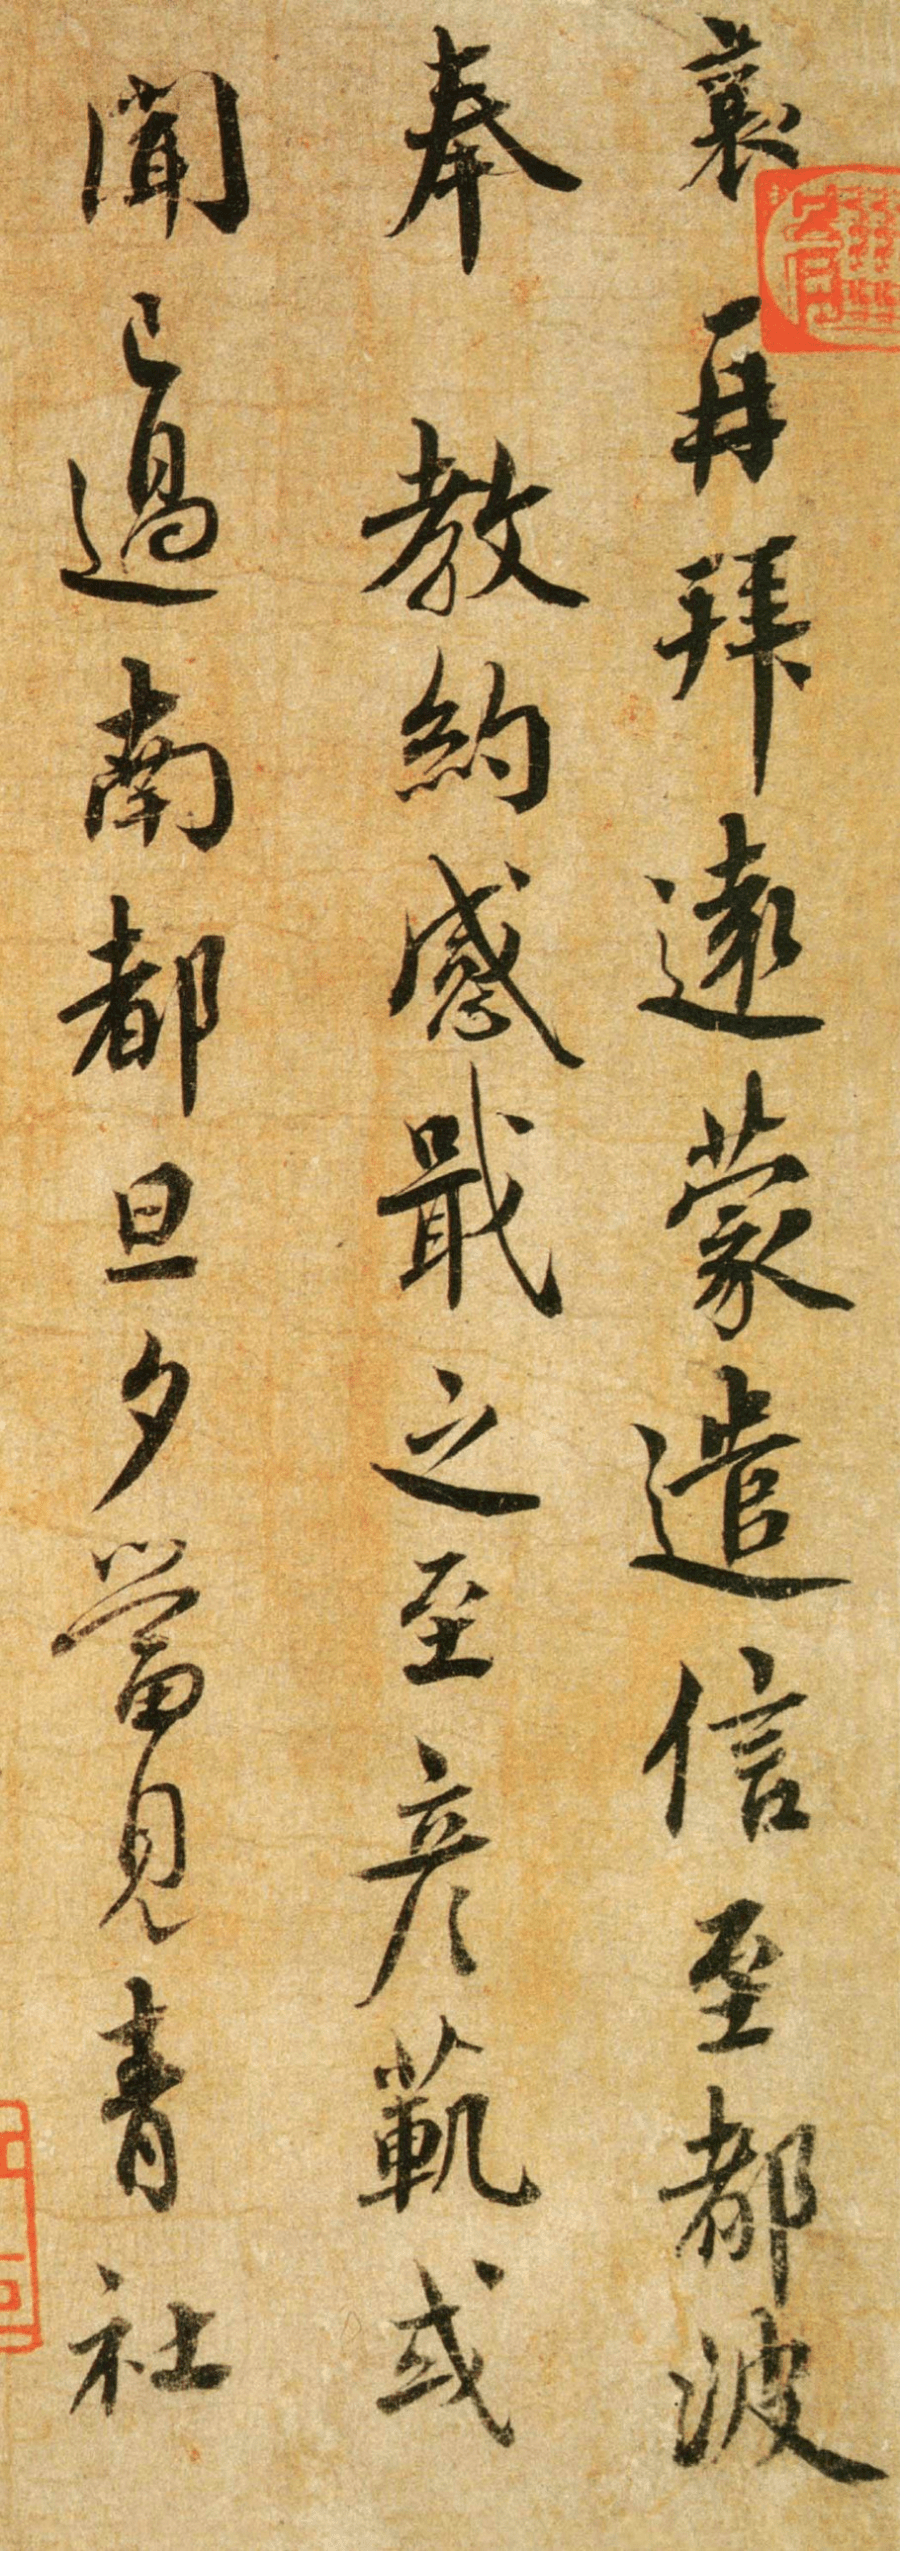 襄再拜遠蒙遣信至都波
奉 教約感戢之至彦範或
聞已過南都旦夕當見青社